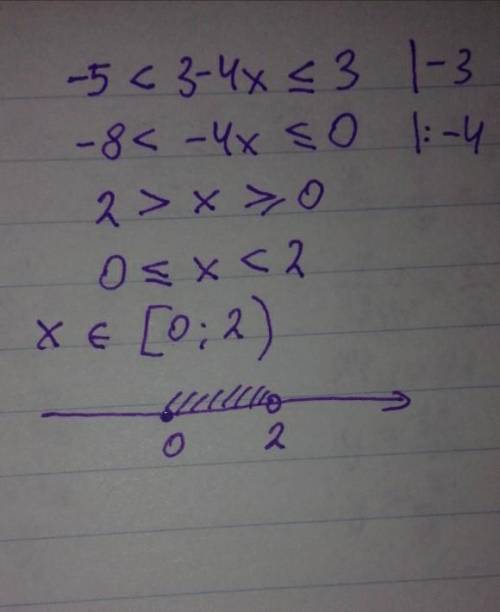 -5 < 3-4x ≤ 3 |-3
-8 < -4x ≤ 0 |: -4
2 > x ⩾ 0
0 ≤ x < 2
x ∈ [0; 2)
0 2